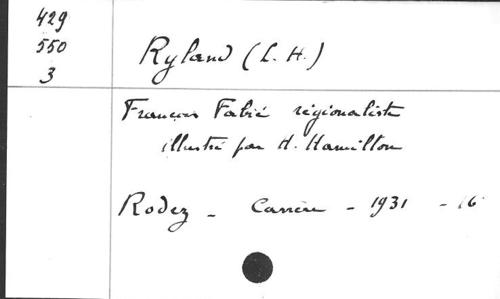 429
550
3
Ryland (L. H.)
François Fabié régionaliste
illustré par H. Hamilton
Rodez - Carrère - 1931 - 16